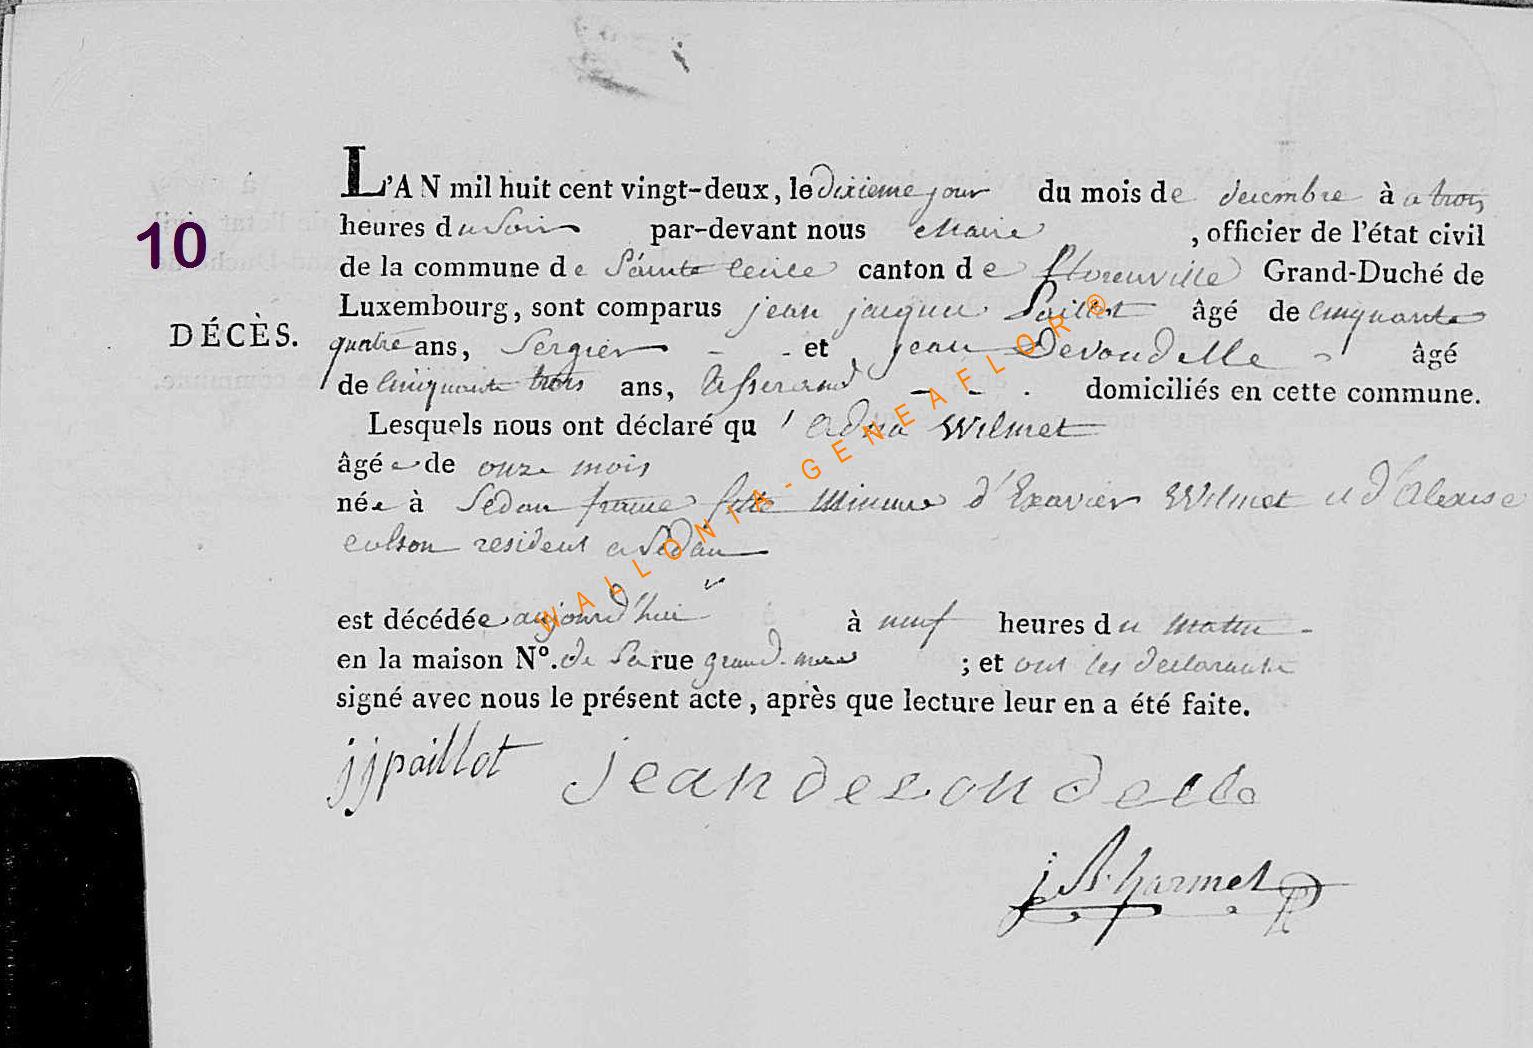 L'AN mil huit cent vingt-deux, le dixieme jour du mois de decembre à a trois
10
heures du soir par-devant nous Maire , officier de l'état civil
de la commune de Sainte Cecile canton de florenville Grand-Duché de
Luxembourg, sont comparus jean jacques Paillot âgé de cinquante
DÉCÈS.
quatre ans, Sergier - - et jean Devoudelle âgé
de cinquante trois ans, tisserand - - . domiciliés en cette commune.
Lesquels nous ont déclaré qu' Wilmet
âgé e de onze mois
née à Sedan france fille Mineure d'Exavier Wilmet et d'Alexise
colson resident a Sedan
est décédée aujourd'hui à neuf heures du matin -
en la maison N°. de Sa rue grand-mere ; et ont les declarants
signé avec nous le présent acte, après que lecture leur en a été faite.
jjpaillot jean
j B. harmel
WALLONIA-GENEAFLOR ®